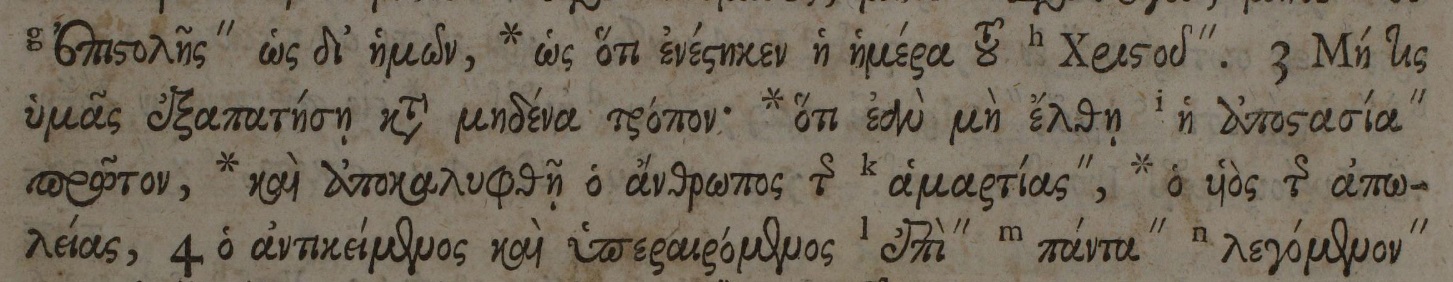 g ἐπιστολῆς" ὡς δι' ἡμῶν, * ὡς ὅτι ἐνέστηκεν ἡ ἡμέρα τοῦ h Χριστοῦ". 3 Μή τις
ὑμᾶς ἐξαπατήσῃ κατὰ μηδένα τρόπον· * ὅτι ἐὰν μὴ ἔλθῃ i ἡ ἀποστασία"
πρῶτον, * καὶ ἀποκαλυφθῇ ὁ ἄνθρωπος τῆς k ἁμαρτίας", * ὁ υἱὸς τῆς ἀπω-
λείας, 4 ὁ ἀντικείμενος καὶ ὑπεραιρόμενος l ἐπὶ" m πάντα" n λεγόμενον"